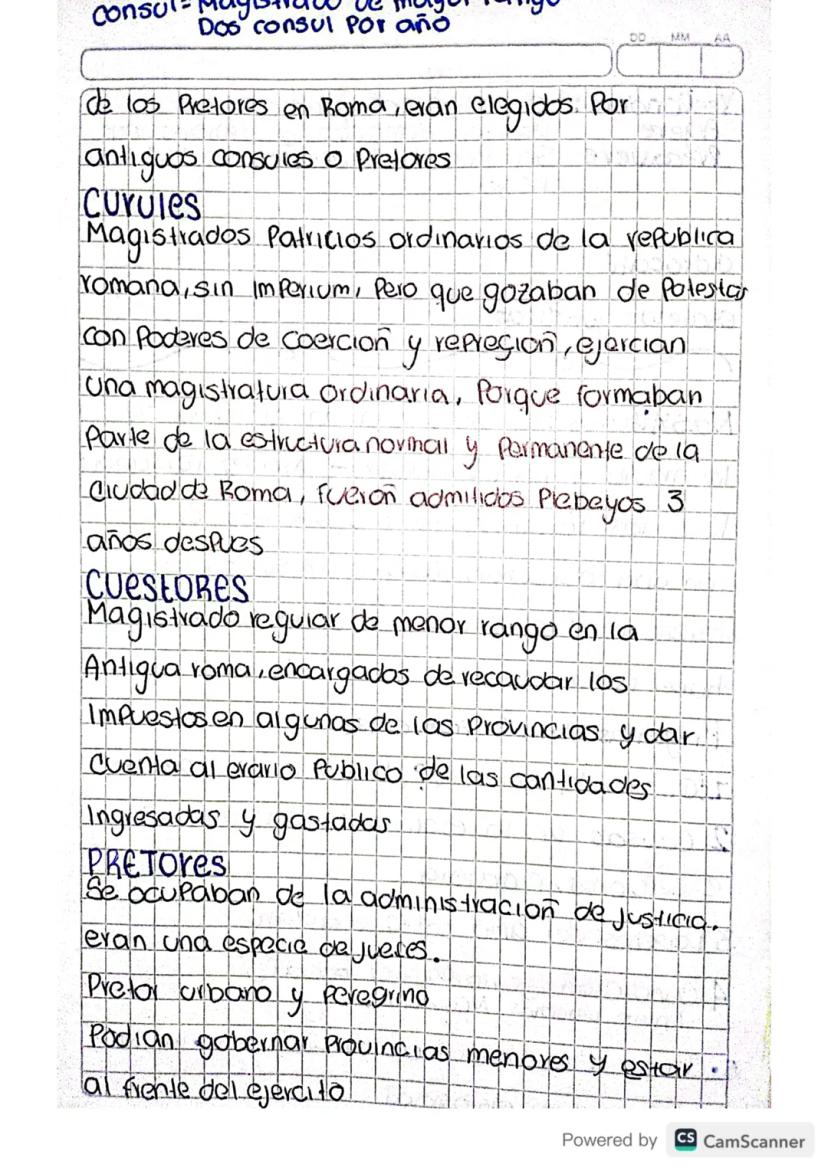 Consul= Magistrado de mayor rango
Dos consul Por año
DD MM AA
de los Pretores en Roma, eran elegidos Por
antiguos consules o Pretores
CURULES
Magistrados Patricios ordinarios de la republica
romana, sin Imperium, Pero que gozaban de Potestas
con Poderes de coercioñ y represioñ, ejercian
una magistratura ordinaria, Porque formaban
Parte de la estructura normal y Permanente de la
Ciudad de Roma, fueroñ admitidos Plebeyos 3
años desPues
CUESTORES
Magistrado regular de menor rango en la
Antigua roma, encargados de recaudar los
Impuestos en algunas de las Provincias y dar
Cuenta al erario Publico de las cantidades
Ingresadas y gastadas
PRETORES
Se ocupaban de la administracioñ de justicia.
eran una especie de jueces.
Pretor urbano y Peregrino
Podian gobernar Provincias menores y estar
al frente del ejercito
Powered by CS CamScanner